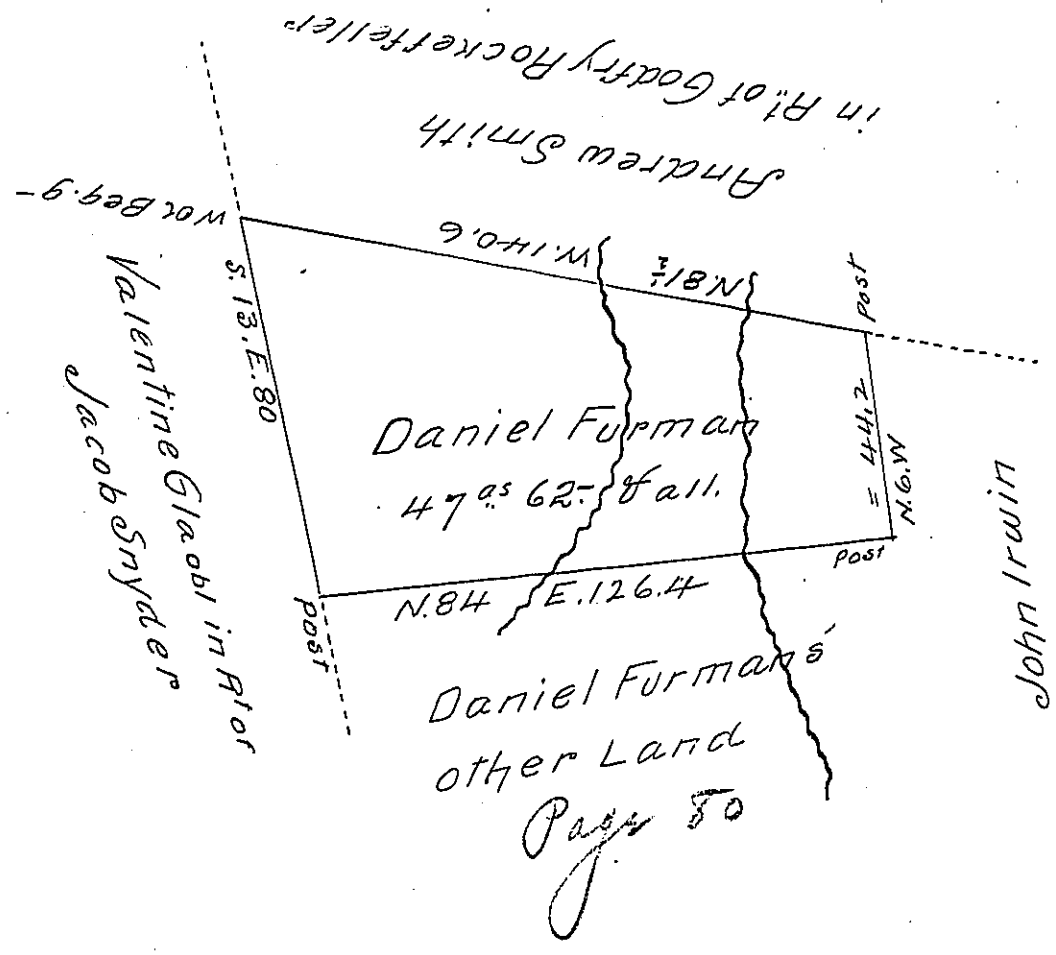 in Rt. of Godfry Rockerfeller
Andrew Smith
W.O. Beg.g
N.81½ W.140.6
Post
S.13.E.80
Valentine Glaobl in Rt of
Jacob Snyder
Daniel Furman
47 as 62- & all.
= 44.2
N.6.W
John Irwin
Post
N.84 E.126.4
Post
Daniel Furmans'
other Land
Page 50